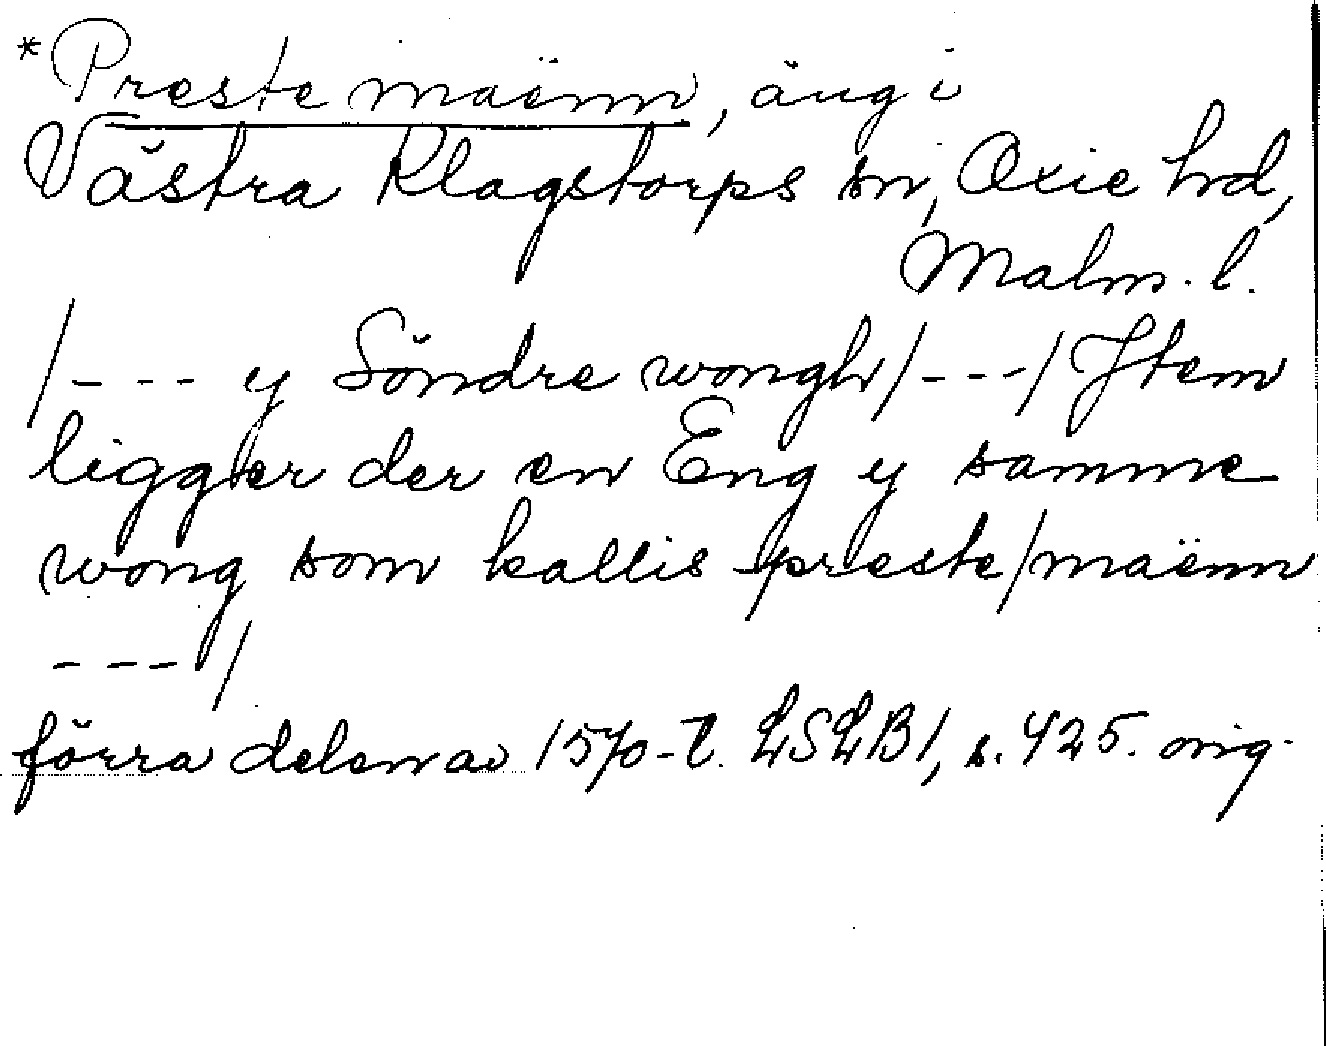 *Preste maënn, äng i
Västra Klagstorps sn, Oxie hd,
Malm. l.
/--- y Söndre wongh/---/ Jtem
ligger der en Eng y samme
wong som kallis preste/maënn
---/
förra delen av 1570-t. LSLB1, s. 425. orig.